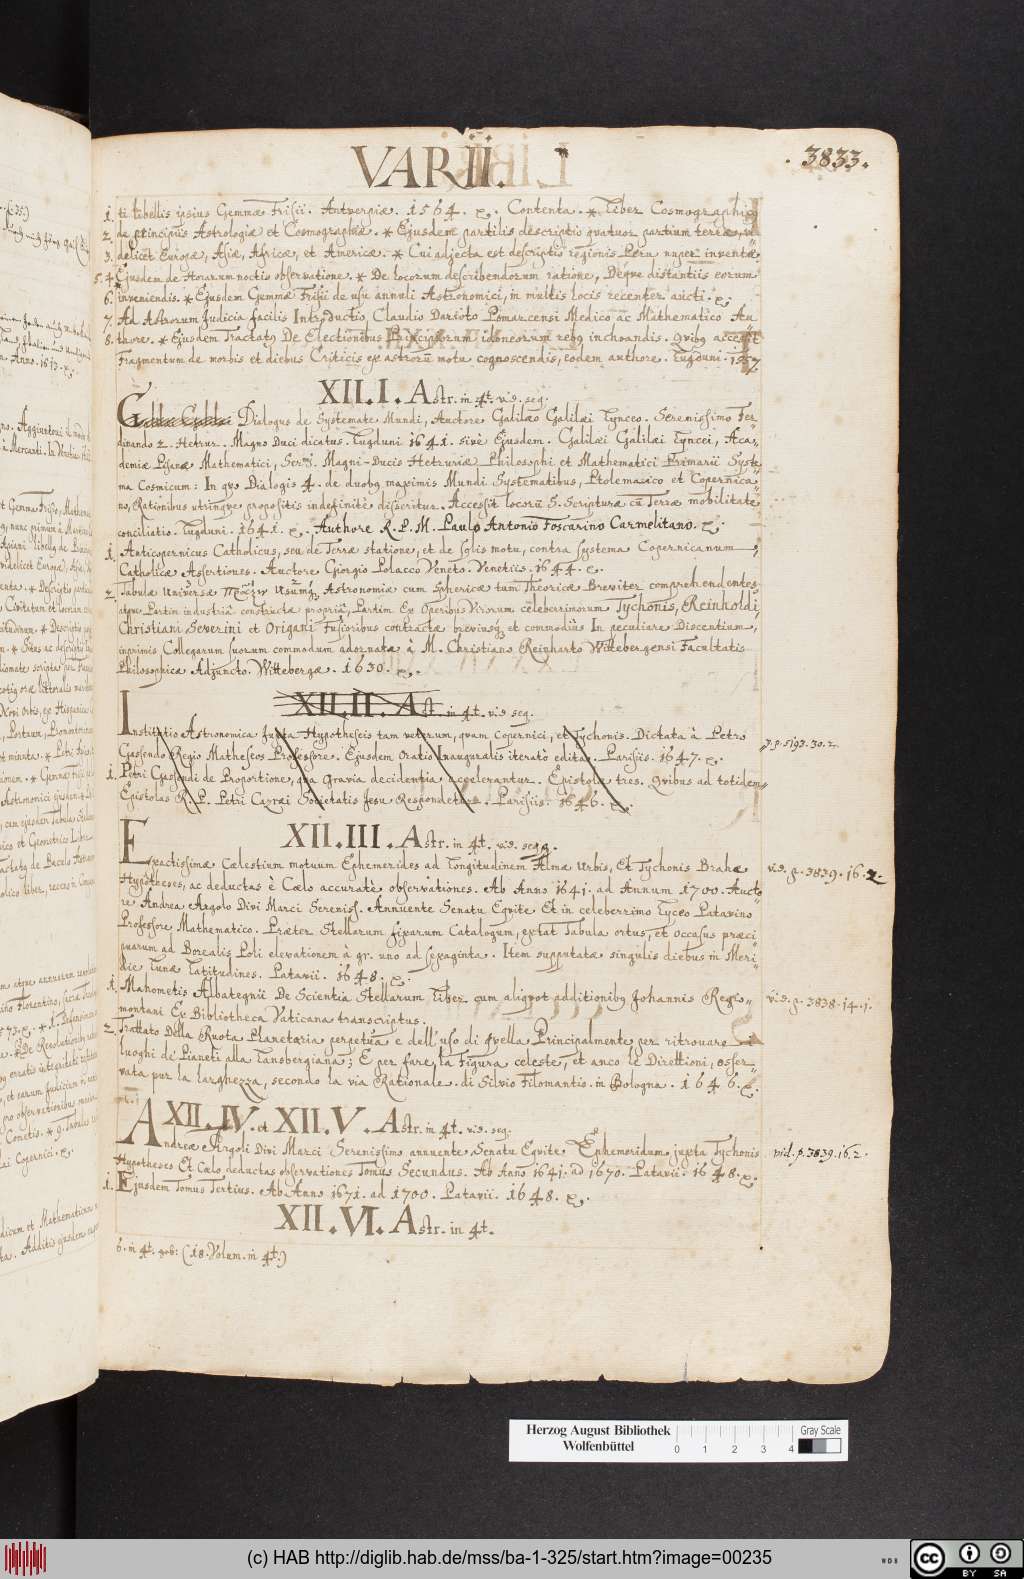 VARII.
. 3833.
1. ti libellis ipsius Gemmæ Frisii. Antverpiæ. 1564. Contenta. * Liber Cosmographi
2. de principiis Astrologiæ et Cosmographiæ. * Ejusdem partilis descriptio quatuor partium terræ, vi
3. delicet Europæ, Asiæ, Africæ, et Americæ. * Cui adjecta est descriptio regionis Peru nuper inventæ.
5. 4. Ejusdem de Horarum noctis observatione. * De locorum describendorum ratione, Deque distantiis eorum
6. inveniendis. * Ejusdem Gemmæ Frisii de usu annuli Astronomici, in multis locis recenter aucti.
7. Ad Astrorum Judicia facilis Introductio, Claudio Darioto Pomarcensi Medico ac Mathematico Au
8. thore. * Ejusdem Tractatq De Electionibus Principiorum idoneorum rebq inchoandis. Quibq accessit
Fragmentum de morbis et diebus Criticis ex astrorũ motu cognoscendis, eodem authore. Lugduni. 1557.
XII. I. Astr. in 4t. vid. seq.
Dialogus de Systemate Mundi, Auctore Galilæo Galilæi Lynceo. Serenissimo Fer
dinando 2. Hetrur. Magno Duci dicatus. Lugduni 1641. sivè Ejusdem. Galilæi Galilæi Lyncei, Aca=
demiæ Pisanæ Mathematici, Ser.mi Magni-Ducis Hetruriæ Philosophi et Mathematici Primarii Syste
ma Cosmicum: In quo Dialogis 4. de duobq maximis Mundi Systematibus, Ptolemaico et Copernica=
no, Rationibus utrinque propositis indefinitè disseritur. Accessit locorũ S. Scripturæ cũ Terræ mobilitate
conciliatio. Lugduni. 1641. Authore R. P. M. Paulo Antonio Foscarino Carmelitano.
1. Anticopernicus Catholicus, seu de Terræ statione, et de solis motu, contra systema Copernicanum,
Catholicæ Assertiones. Auctore Giorgio Polacco Veneto. Venetiis. 1644.
2. Tabulæ Universæ Astronomiæ cum Sphericæ tum Theoricæ Breviter comprehendentes
atque Partim industriâ constructæ propriâ, Partim Ex Operibus Virorum celeberrimorum Tychonis, Reinholdi,
Christiani Severini et Origani Fusioribus contractæ breviusq et commodius In peculiare Discentium,
inprimis Collegarum suorum commodum adornatæ à M. Christiano Reinharto Wittebergensi Facultatis
Philosophicæ Adjuncto. Wittebergæ. 1630.
XII. II. Ast. in 4t. vid seq.
Institutio Astronomica juxta Hypotheseis tam veterum, quam Copernici, et Tychonis. Dictata à Petro
p. p. 5193. 30. 2.
Gassendo Regio Matheseos Professore. Ejusdem Oratio Inauguralis iteratò edita. Parisiis. 1647.
1. Petri Gassendi de Proportione, qua Gravia decidentia accelerantur. Epistolæ tres. Quibus ad totidem
Epistolas R. P. Petri Cazræi Societatis Jesu Respondetur. Parisiis. 1646.
XII. III. Astr. in 4t. vid. seqq.
Exactissimæ Cælestium motuum Ephemerides ad Longitudinem Almæ Urbis, Et Tychonis Brahæ
vid. p. 3839. 16. 2.
Hypotheses, ac deductas è Cælo accuratè observationes. Ab Anno 1641. ad Annum 1700. Aucto
re Andrea Argolo Divi Marci Sereniss. Annuente Senatu Equite Et in celeberrimo Lyceo Patavino
Professore Mathematico. Præter Stellarum fixarum Catalogum, extat Tabula ortus, et occasus præci
quarum ad Borealis Poli elevationem à gr. uno ad sexaginta. Item supputatæ singulis diebus in Meri
die Lunæ Latitudines. Patavii. 1648.
1. Mahometis Albategnii De Scientia Stellarum Liber cum aliquot additionibq Johannis Regio=
vid. p. 3838. 14. 1.
montani Ex Bibliotheca Vaticana transcriptus.
2. Trattato Della Ruota Planetaria perpetua e dell' uso di quella Principalmente per ritrovare
luoghi de' Pianeti alla Lansbergiana; E per fare la Figura celeste, et anco le Direttioni, osser=
vata pur la larghezza, secondo la via Rationale. di Silvio Filomantio. in Bologna. 1646.
XII. IV. et XII. V. Astr. in 4t. vid. seq.
Andreæ Argoli Divi Marci Serenissimo annuente Senatu Equite Ephemeridum juxta Tychonis
vid. p. 3839. 16. 2.
Hypotheses Et Cælo deductas observationes Tomus Secundus. Ab Anno 1641. ad 1670. Patavii. 1648.
1. Ejusdem Tomus Tertius. Ab Anno 1671. ad 1700. Patavii. 1648.
XII. VI. Astr. in 4t.
6. in 4t. (18. Volum. in 4t.)
Herzog August Bibliothek
Wolfenbüttel
0 1 2 3 4
Gray Scale
(c) HAB http://diglib.hab.de/mss/ba-1-325/start.htm?image=00235
WDB
cc BY SA